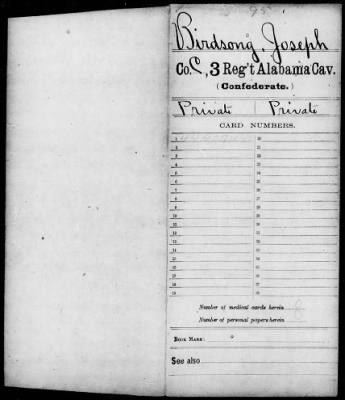 Birdsong, Joseph
Co. C, 3 Reg't Alabama Cav.
(Confederate.)
Private Private
CARD NUMBERS.
1 20
2 21
3 22
4 23
5 24
6 25
7 26
8 27
9 28
10 29
11 30
12 31
13 32
14 33
15 34
16 35
17 36
18 37
19 38
Number of medical cards herein
Number of personal papers herein
BOOK MARK:
See also